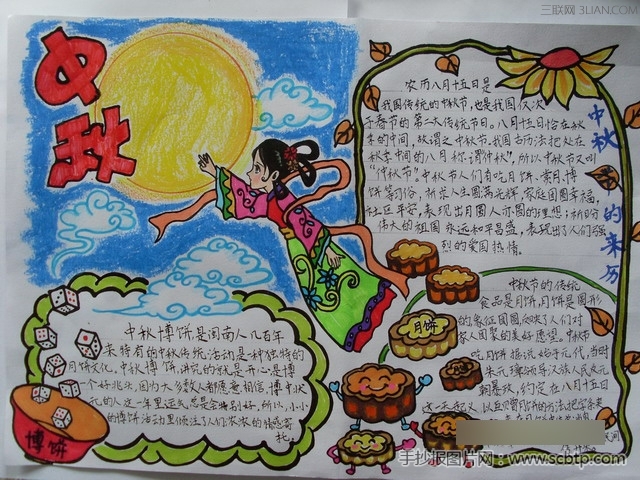 三联网 3LIAN.COM
中秋
农历八月十五日是
我国传统的中秋节,也是我国仅次
于春节的第二大传统节日。八月十五恰在秋
季的中间,故谓之中秋节。我国古历法把处在
秋季中间的八月称谓"仲秋",所以中秋节又叫
"仲秋节"。中秋节人们有吃月饼、赏月、博
饼等习俗,祈求人生圆满光辉,家庭团圆幸福,
社区平安,表现出月圆人亦圆的理想;祈盼
伟大的祖国永远和平昌盛,表现出了人们强
烈的爱国热情。
中秋的来历
中秋节的传统
食品是月饼,月饼是圆形
的,象征团圆,反映了人们对
家人团聚的美好愿望。中秋节
吃月饼据说始于元代,当时
朱元璋领导汉族人民反
朝暴政,约定在八月十五日
这一天起义,以互赠月饼的办法把字条
月饼
中秋博饼,是闽南人几百年
来特有的中秋传统活动是一种独特的
月饼文化。中秋博饼,讲究的就是开心是博
一个好兆头,因为大多数人都愿意相信,博中状
元的人这一年里运气总是会特别好。所以,小小
的博饼活动里倾注了人们浓浓的情感寄
托。
博饼
手抄报图片网:www.scbtp.com